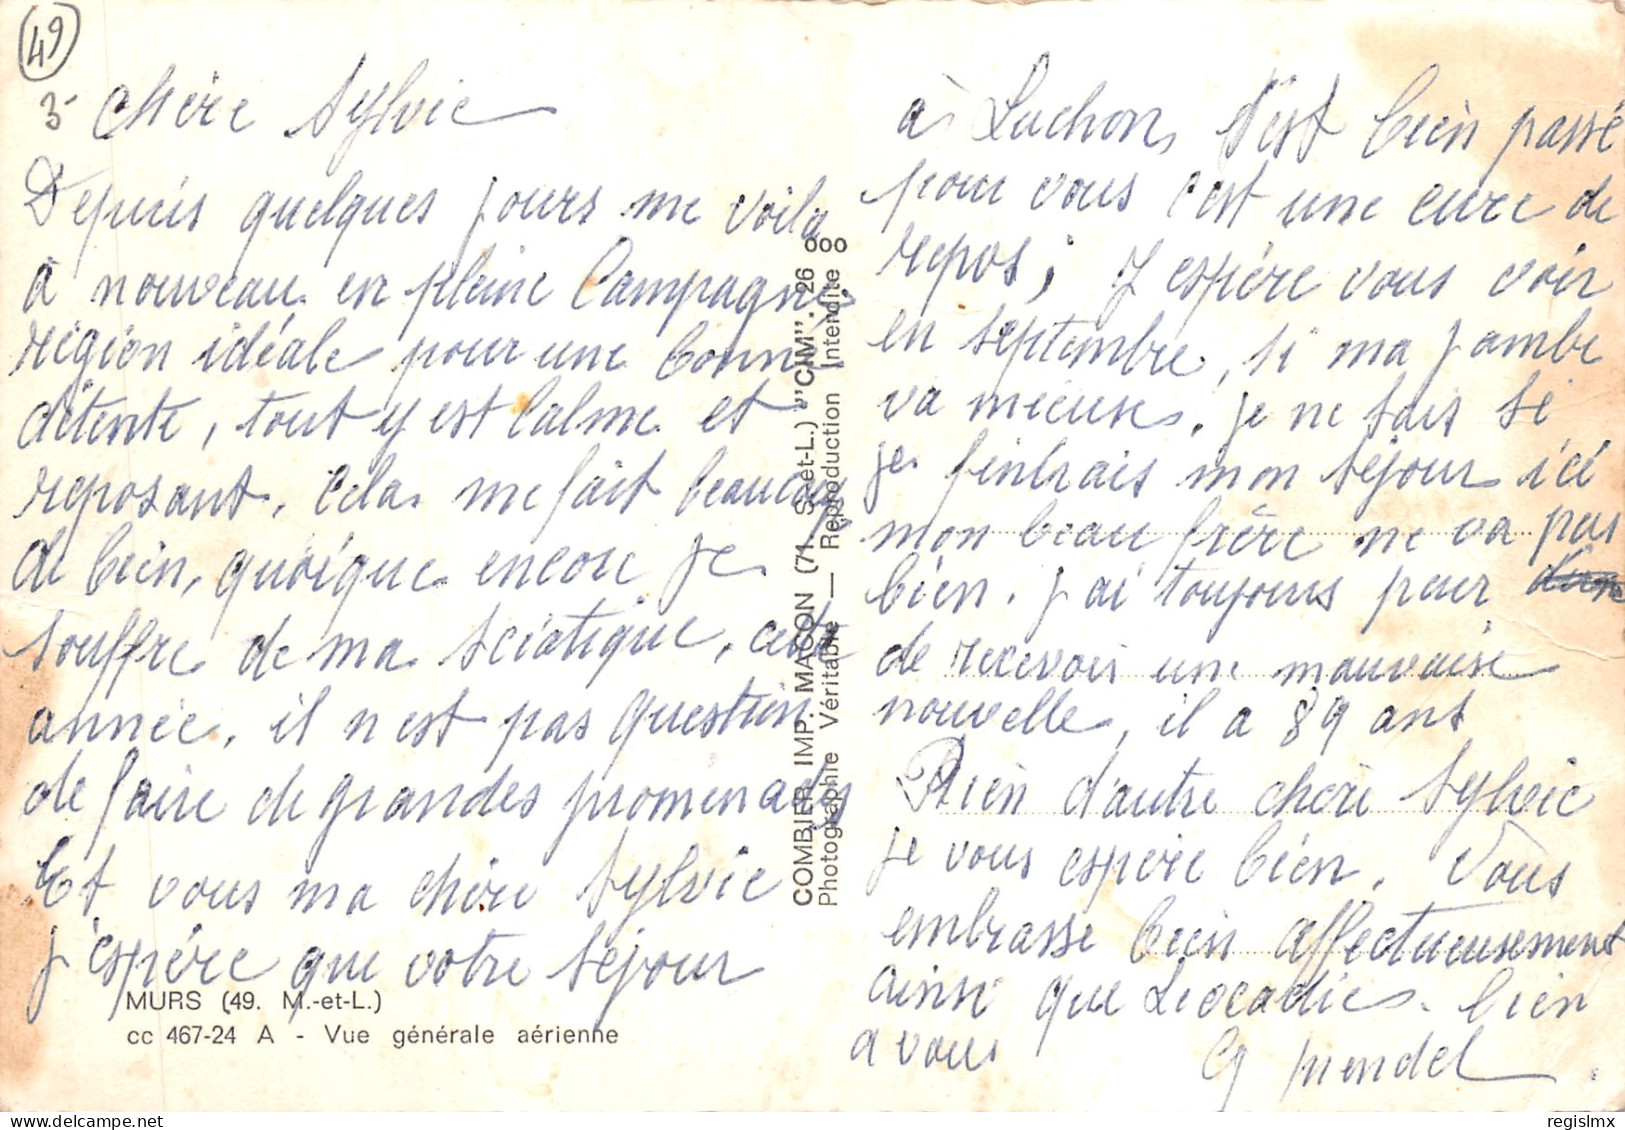 49
3-
Chère Sylvie
Depuis quelques jours me voila
à nouveau en pleine Campagne
région idéale pour une bonne
détente, tout y est Calme et
reposant, Cela me fait beaucoup
de bien, quoique encore je
souffre de ma sciatique, cette
année, il n'est pas question
de faire de grandes promenades
Et vous ma chère Sylvie
j'espère que votre séjour
MURS (49. M.-et-L.)
cc 467-24 A - Vue générale aérienne
COMBIER IMP. MACON (71. S.-et-L.) "CIM". 26
Photographie Véritable — Reproduction Interdite
à Luchon, s'est bien passé
pour vous c'est une cure de
repos; J'espère vous voir
en septembre, si ma jambe
va mieux. je ne sais si
je finirais mon séjour ici
mon beau frère ne va pas
bien. j'ai toujours peur
de recevoir une mauvaise
nouvelle, il a 89 ans
Rien d'autre chère Sylvie
je vous espère bien. Vous
embrasse bien affectueusement
ainsi que Léocadie. bien
a vous
mendel
regislmx